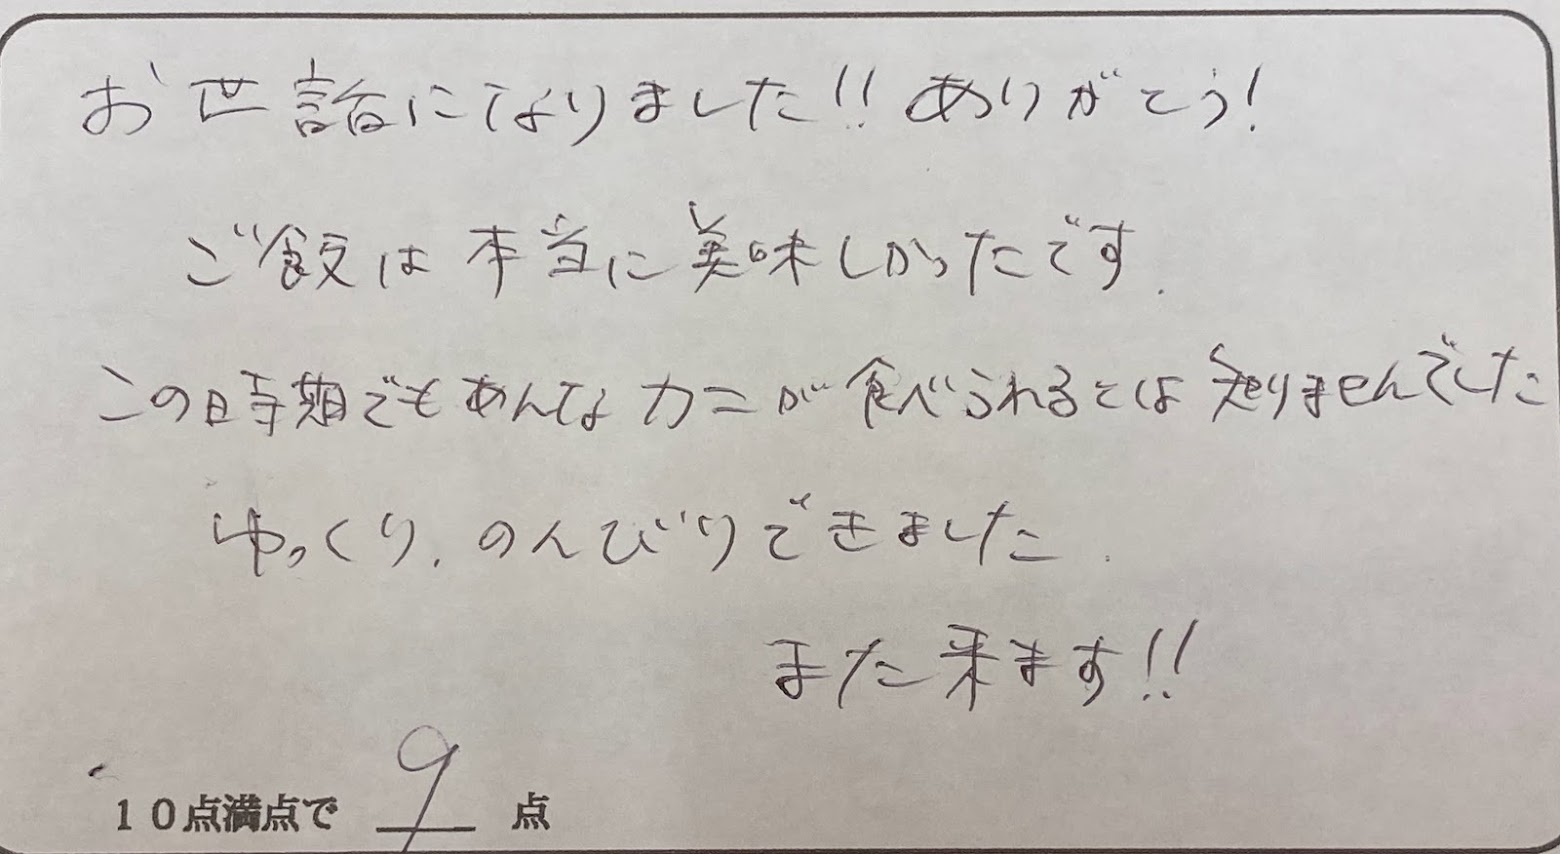 お世話になりました!! ありがとう!
ご飯は本当に美味しかったです.
この時期でもあんなカニが食べられるとは知りませんでした
ゆっくり.のんびりできました.
また来ます!!
10点満点で 9 点